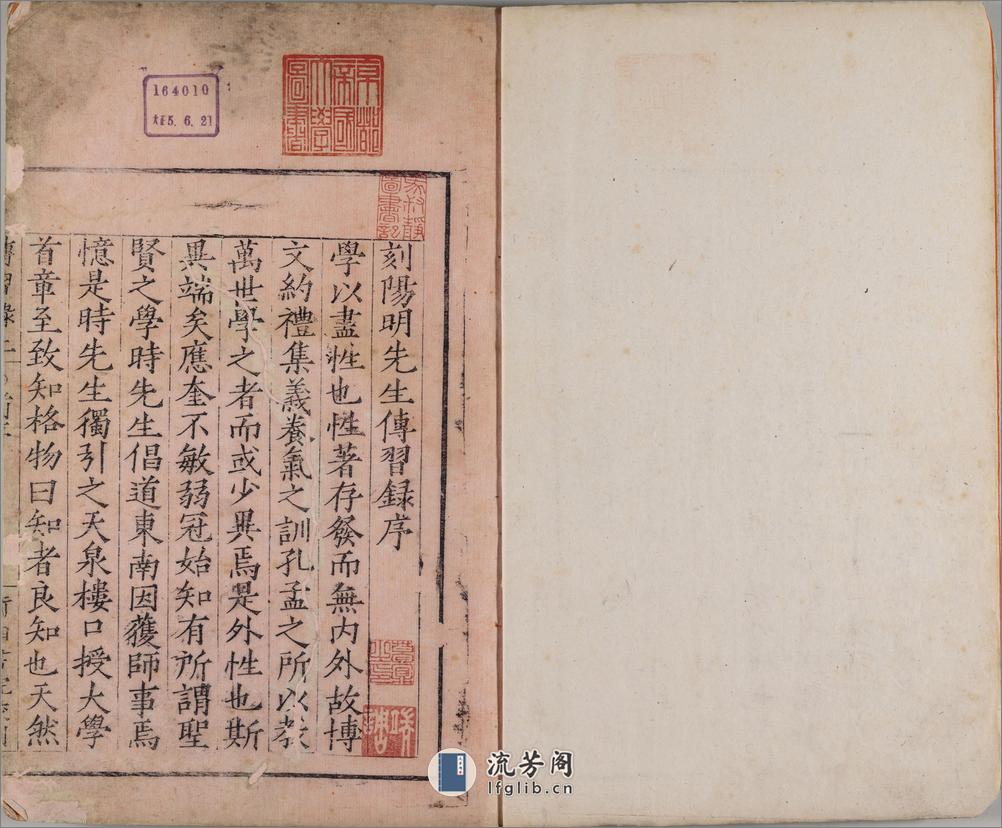 刻陽明先生傳習録序
學以盡性也性著存發而無内外故博
文約禮集義養氣之訓孔孟之所以教
萬世學之者而或少異焉是外性也斯
異端矣應奎不敏弱冠始知有所謂聖
賢之學時先生倡道東南因獲師事焉
憶是時先生獨引之天泉樓口授大學
首章至致知格物曰知者良知也天然
傳習錄
164010
大正5.6.21
京都
帝國
大學
圖書
圖書記
流芳阁
lfglib.cn